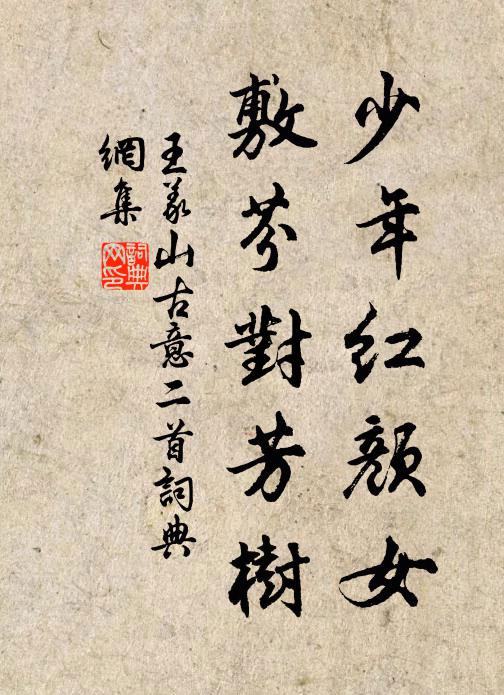 少年红颜女
敷芬對芳樹
王义山古意二首詞典
網集
詞典
网印